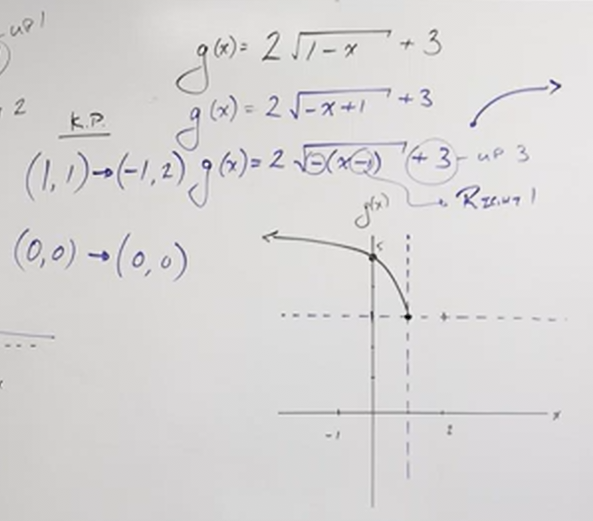 up 1
2
g(x) = 2 √(1 - x) + 3
g(x) = 2 √(-x+1) + 3
K.P.
(1, 1) → (-1, 2) g(x) = 2 √(-(x-1)) + 3 - up 3
Right 1
(0, 0) → (0, 0)
g(x)
5
-1
2
x